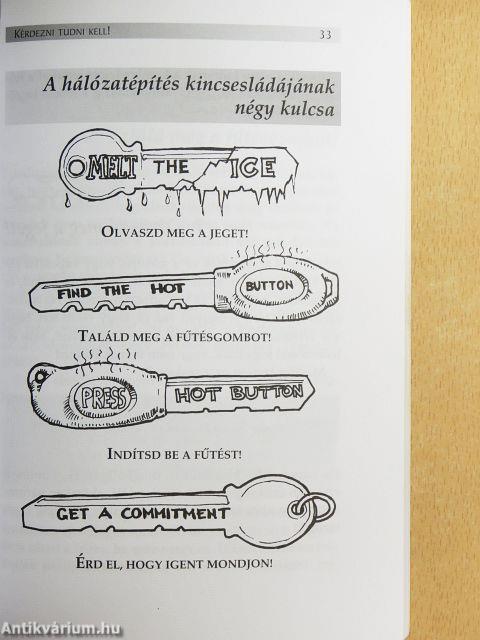 KÉRDEZNI TUDNI KELL!
33
A hálózatépítés kincsesládájának
négy kulcsa
MELT THE ICE
OLVASZD MEG A JEGET!
FIND THE HOT BUTTON
TALÁLD MEG A FŰTÉSGOMBOT!
PRESS HOT BUTTON
INDÍTSD BE A FŰTÉST!
GET A COMMITMENT
ÉRD EL, HOGY IGENT MONDJON!
Antikvárium.hu